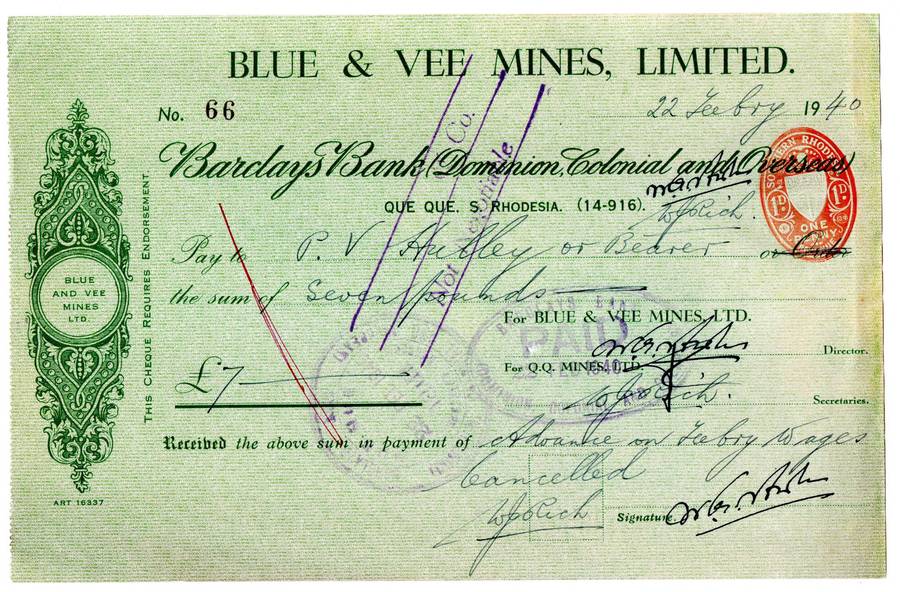 BLUE & VEE MINES, LIMITED.
No. 66
22 Feebry 1940
Barclays Bank (Dominion, Colonial and Overseas)
QUE QUE, S. RHODESIA. (14-916).
WJRich.
SOUTHERN RHODESIA
1D 1D
ONE PENNY
Pay to P. V Hulley or Bearer or Order
the sum of Seven pounds
& Co.
Not Negotiable
For BLUE & VEE MINES, LTD.
PAID
Director.
For Q.Q. MINES, LTD.
1940
WJRich.
Secretaries.
£7
Received the above sum in payment of Advance on Feebry Wages
Cancelled
WJRich
Signature
THIS CHEQUE REQUIRES ENDORSEMENT
BLUE
AND VEE
MINES
LTD.
ART 16337